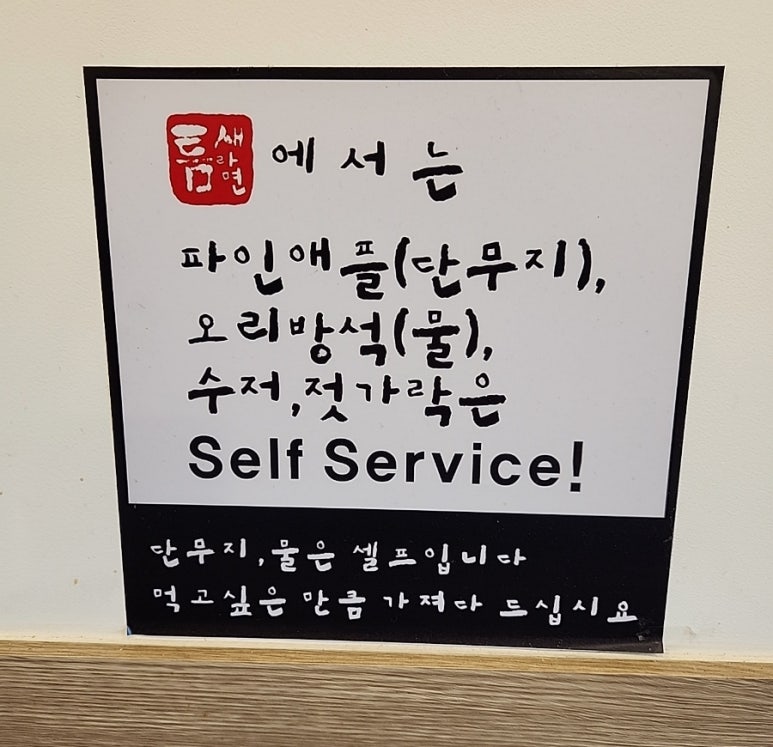 틈새라면에서는
파인애플(단무지),
오리방석(물),
수저,젓가락은
Self Service!
단무지,물은 셀프입니다
먹고싶은 만큼 가져다 드십시요